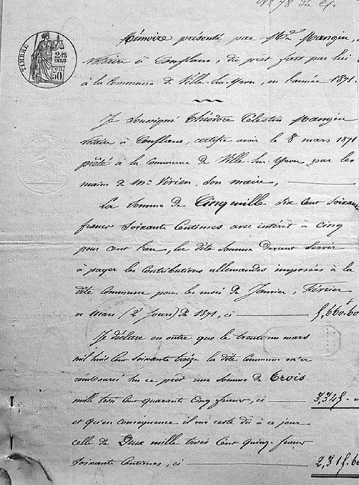 Mémoire présenté par Mr Mangin,
notaire à Conflans, du prêt fait par lui
à la Commune de Ville-sur-Yron, en l'année 1871.
TIMBRE
50
Je soussigné Théodore Célestin Mangin
notaire à Conflans, certifie avoir le 8 mars 1871
prêté à la Commune de Ville-sur-Yron, par les
mains de Mr Vivien, son maire,
la somme de Cinq mille six cent soixante
francs soixante Centimes avec intérêt à cinq
pour cent l'an, la dite Somme devant servir
à payer les Contributions allemandes imposées à la
dite Commune pour les mois de Janvier, Février
et Mars (2 jours) de 1871, ci 5,660.60
Je déclare en outre que le trente un mars
mil huit cent soixante treize la dite Commune m'a
remboursé sur ce prêt une somme de Trois
mille trois cent quarante cinq francs, ci 3,345
et qu'en conséquence il me reste dû à ce jour
celle de Deux mille trois cent quinze francs
soixante Centimes, ci 2,315.60